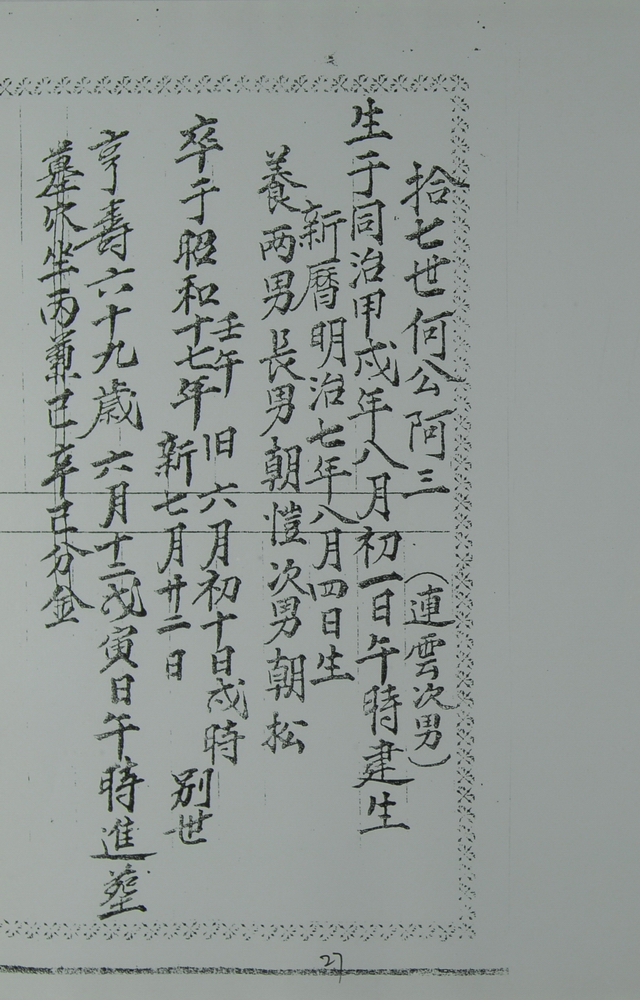 拾七世何公阿三(連雲次男)
生于同治甲戍年八月初一日午時建生
新曆明治七年八月四日生
養兩男長男朝愷次男朝松
卒于昭和十七年壬午旧六月初十日戍時新七月廿二日別世
亨壽六十九歲六月十二戊寅日午時進塟
墓穴坐丙兼巳辛巳分金
27